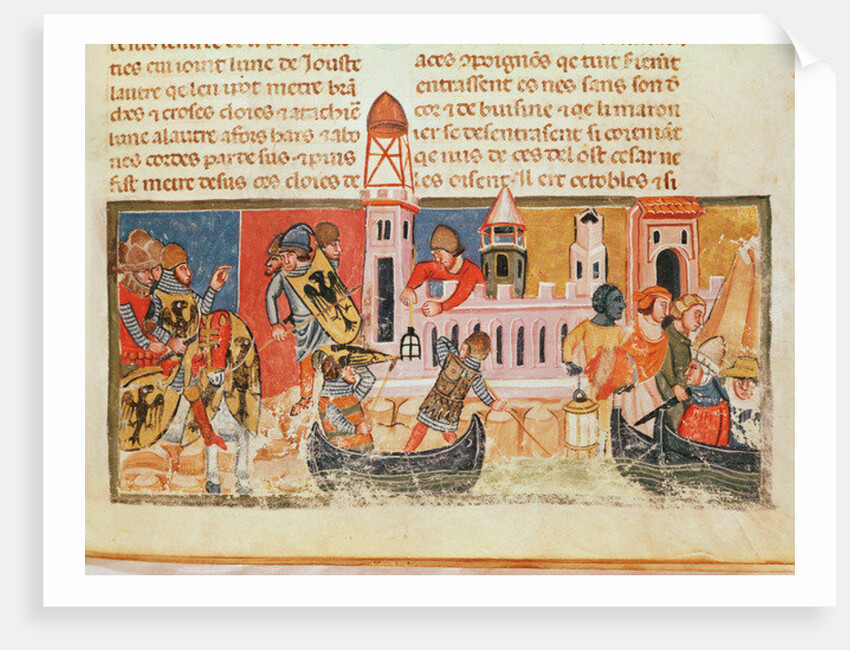 ties cui ioint lune de Jouste
lautre qe leu uoit metre brā
ches ⁊ croses cloies ⁊ atachiēt
lune alautre afors bars ⁊ abo
nes cordes par de sus ⁊ puis
fist metre desus ces cloies de
aces ⁊ poignōs qe tuit fierēt
entrassent es nes sans son d
cor ⁊ de buisine ⁊ qe li maron
ier se desentrasent si coiemāt
qe nus de ces del ost cesar ne
les oisent Il ert octobles ⁊ si